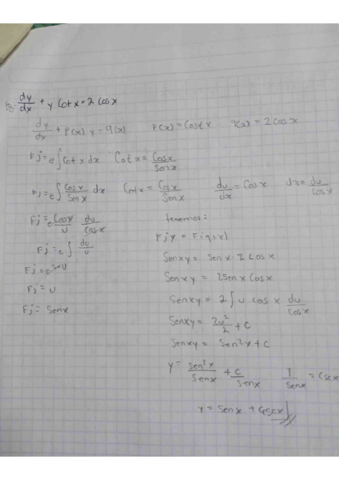 dy/dx + y Cot x = 2 cos x
dy/dx + P(x) y = q(x)   P(x) = Cot x   q(x) = 2 cos x
Fj = e∫Cot x dx   Cot x = Cosx/Senx
Fj = e∫ Cosx/Senx dx   Cotx = Cosx/Senx   du/dx = Cos x   dx = du/cosx
Fj = e Cosx/u du/cosx   tenemos:
Fj = e∫ du/u   Fjy = Fjq(x)
Senxy = Senx · 2 Cosx
Fj = u   Senxy = 2Senx Cosx
Fj = Senx   Senxy = 2∫ u cos x du/cosx
Senxy = 2u²/2 + C
Senxy = Sen²x + C
y = sen²x/senx + C/senx   1/senx = csc x
= Senx + Ccscx